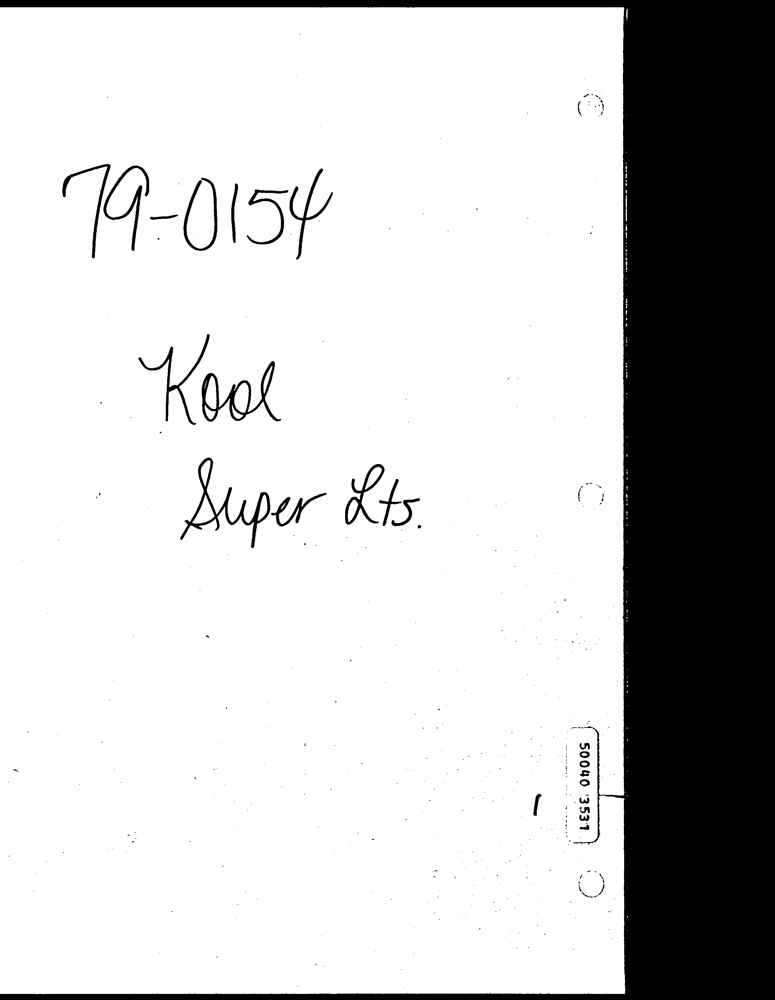 79-0154
Kool
Super Lts.
50040 3531